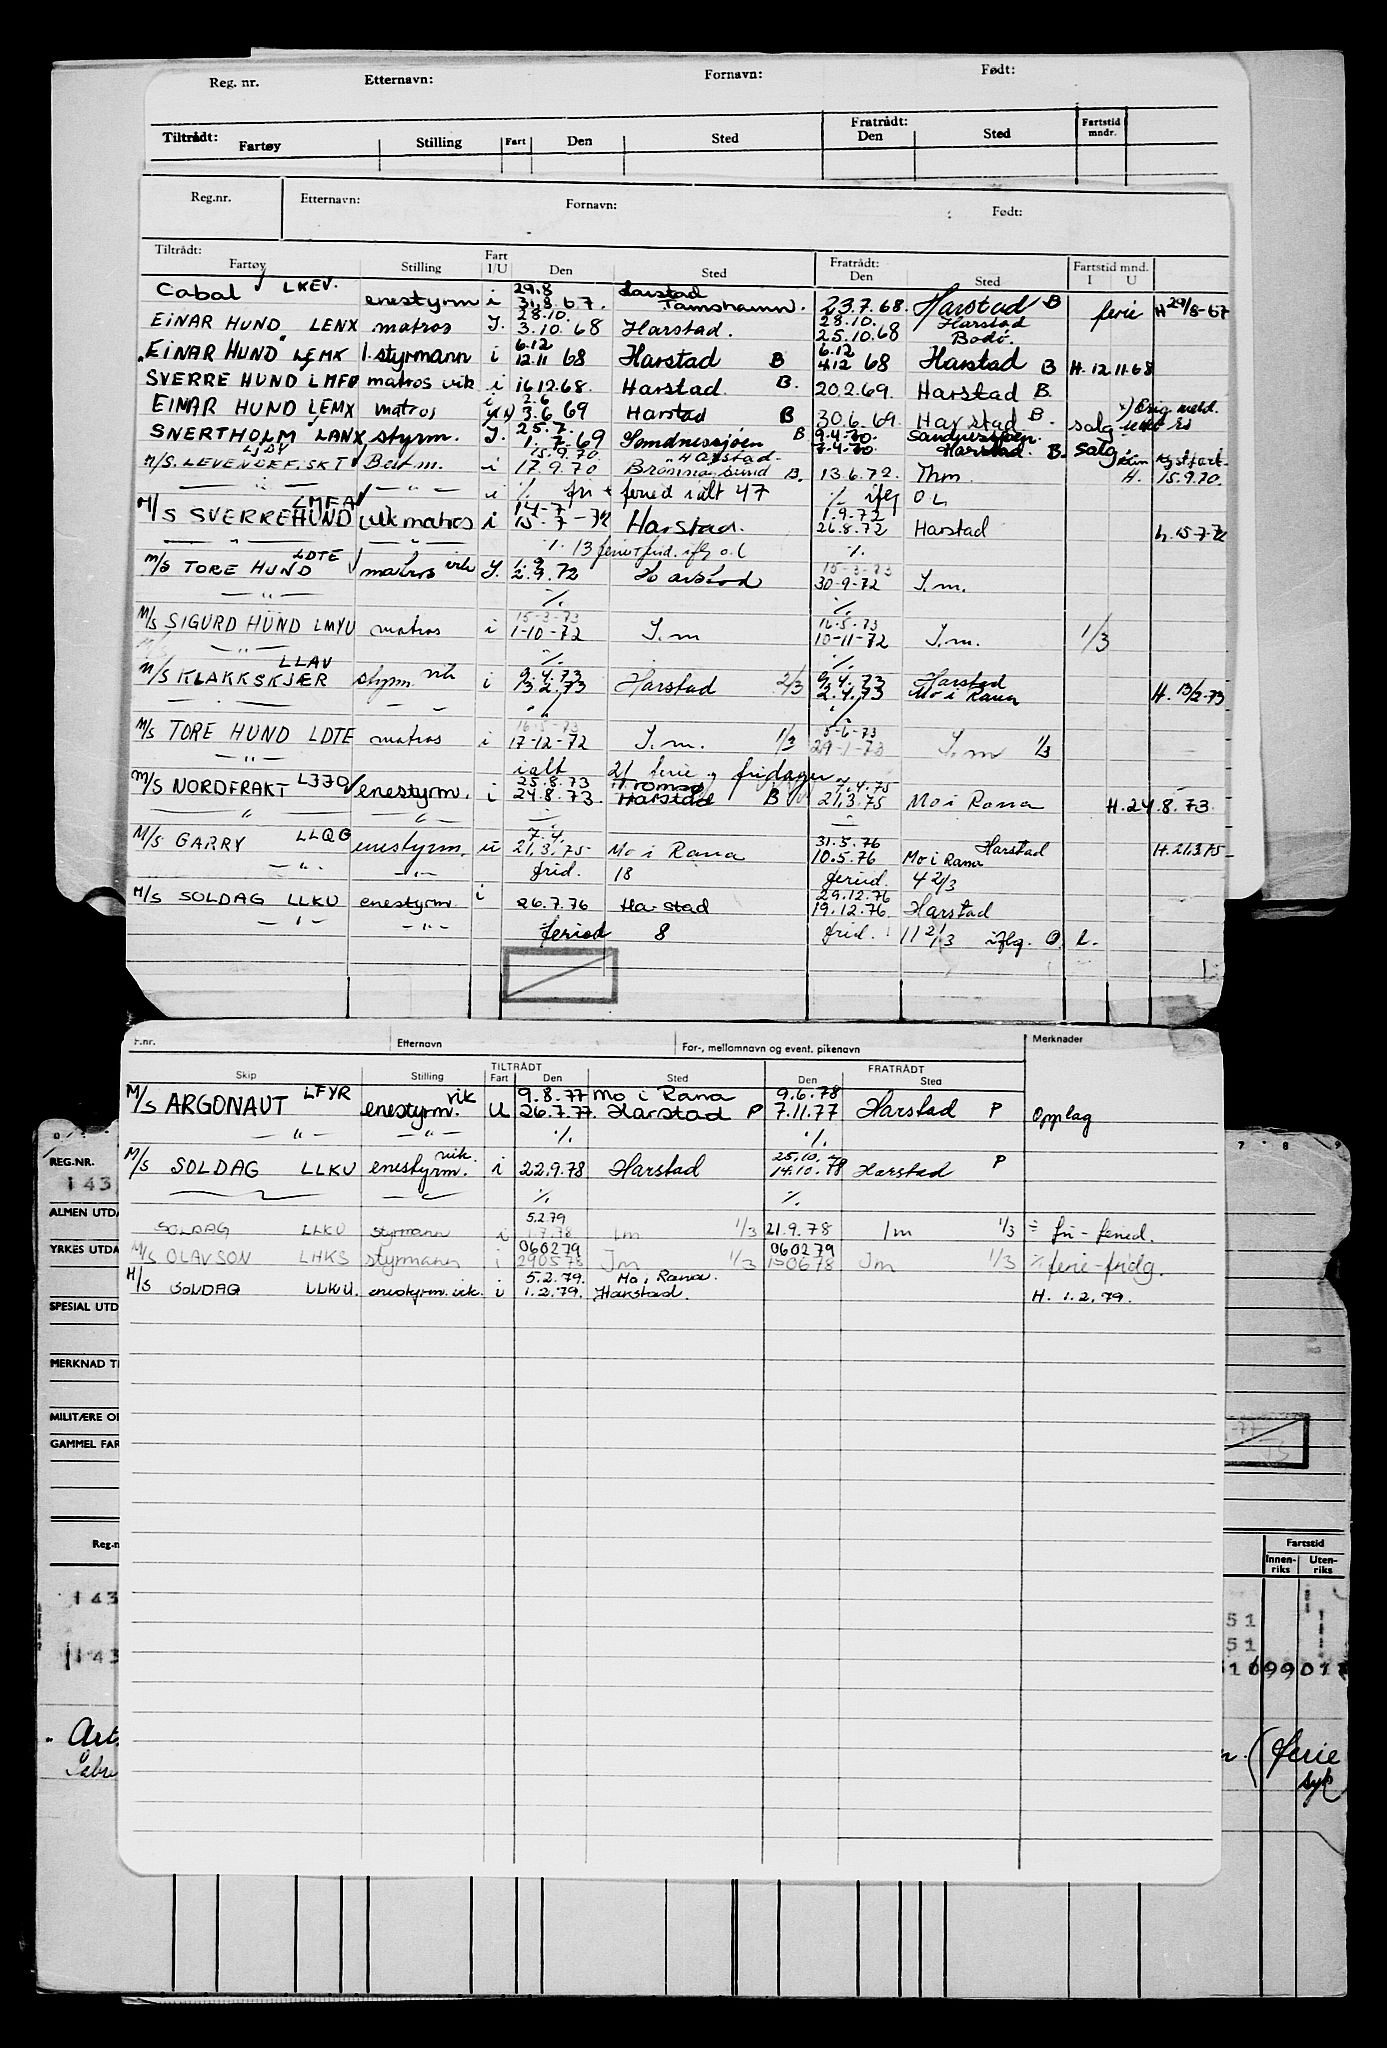 Reg. nr. Etternavn: Fornavn: Født:
Tiltrådt: Fratrådt: Fartstid mndr.
Fartøy Stilling Fart Den Sted Den Sted
Reg.nr. Etternavn: Fornavn: Født:
Tiltrådt: Fart Fratrådt: Fartstid mnd.
Fartøy Stilling I/U Den Sted Den Sted I U
29.8 Harstad
Cabal LKEV. enestyrm i 31.8.67. Tamshamn. 23.7.68. Harstad B ferie H 29/8-67
28.10. 28.10. Harstad
EINAR HUND LENX matros I. 3.10.68 Harstad. 25.10.68 Bodø.
6.12 6.12
"EINAR HUND" LEMK 1. styrmann i 12.11 68 Harstad B 4.12 68 Harstad B H. 12.11.68
SVERRE HUND LMFA matros vik i 16.12.68. Harstad B. 20.2.69. Harstad B.
i 2.6 x) Orig. meld.
EINAR HUND LEMX matros 3.6 69 Harstad B 30.6.69. Harstad B. salg
25.7. 9.4.70. Sandnessjøen.
SNERTHOLM LANX styrm. I. 1.7.69 Somdnessjøen B 7.4.70. Harstad. B. salg
15.9.70 " Harstad.
M/S. LEVENDEFISKT Best.m. i 17.9.70 Brønnøysund B. 13.6.72. Thm. H. 15.9.70.
— " — — " — i % fri + feried ialt 47 % iflg O L
LMFA 14-7 1.9.72
M/S SVERRE HUND vik matros i 15-7-72 Harstad. 26.8.72 Harstad h. 15-7-72
— " — — " — %. 13 ferie+frid. iflg o.l %.
LDTE 15-3-73
M/S TORE HUND matros vik I. 2.9.72 Harstad 30-9-72 I.m.
— " — %. %.
15-3-73 16-5-73
M/S SIGURD HUND LMYU matros i 1-10-72 I.m 10-11-72 I.m. 1/3
— " — %. %.
LLAV 9.4.73 9.4.73 Harstad
M/S KLAKKSKJÆR styrm vik i 13.2.73 Harstad 2/3 2.4.73 Mo i Rana H. 13/2-73
16-5-73 5-6-73
M/S TORE HUND LDTE matros i 17-12-72 I.m. 1/3 29-1-73 I.m 1/3
— " — ialt 21 ferie og fridager
25.8.73 Tromsø 7.4.75
M/S NORDFRAKT LJJO enestyrm. i 24.8.73. Harstad B 21.3.75 Mo i Rana H. 24.8.73.
— " — — " —
7.4. 31.5.76 Harstad
M/S GARRY LLQG enestyrm. u 21.3.75 Mo i Rana 10.5.76 Mo i Rana H. 21.3.75
— " — — " — frid. 18 feried. 4 2/3
29.12.76
M/S SOLDAG LLKU enestyrm. i 26.7.76 Harstad 19.12.76 Harstad
— " — — " — feried 8 frid. 11 2/3 iflg. O. L.
F.nr. Etternavn For-, mellomnavn og event. pikenavn Merknader
TILTRÅDT FRATRÅDT
Skip Stilling Fart Den Sted Den Sted
LFYR vik 9.8.77 Mo i Rana 9.6.78
M/S ARGONAUT enestyrm. U 26.7.77. Harstad P 7.11.77 Harstad P Opplag
— " — — " — %. %.
vik. 25.10.
M/S SOLDAG LLKU enestyrm. i 22.9.78 Harstad 14.10.78 Harstad P
%. %.
5.2.79
SOLDAG LLKU styrmann i 1.7.78 Im 1/3 21.9.78 Im 1/3 ÷ fri-feried.
060279 060279
M/S OLAVSON LHKS styrmann i 290578 Im 1/3 150678 Im 1/3 % ferie-fridg.
5.2.79. Mo i Rana.
M/S SOLDAG LLKU. enestyrm. vik. i 1.2.79. Harstad. H. 1.2.79.
REG.NR.
143
ALMEN UTDA
YRKES UTDA
SPESIAL UTD
MERKNAD T
MILITÆRE O
GAMMEL FAR
7 8 9
Reg.n
Fartstid
Innenriks Utenriks
143
51
51
143
099017
Art.
n. (ferie
syk